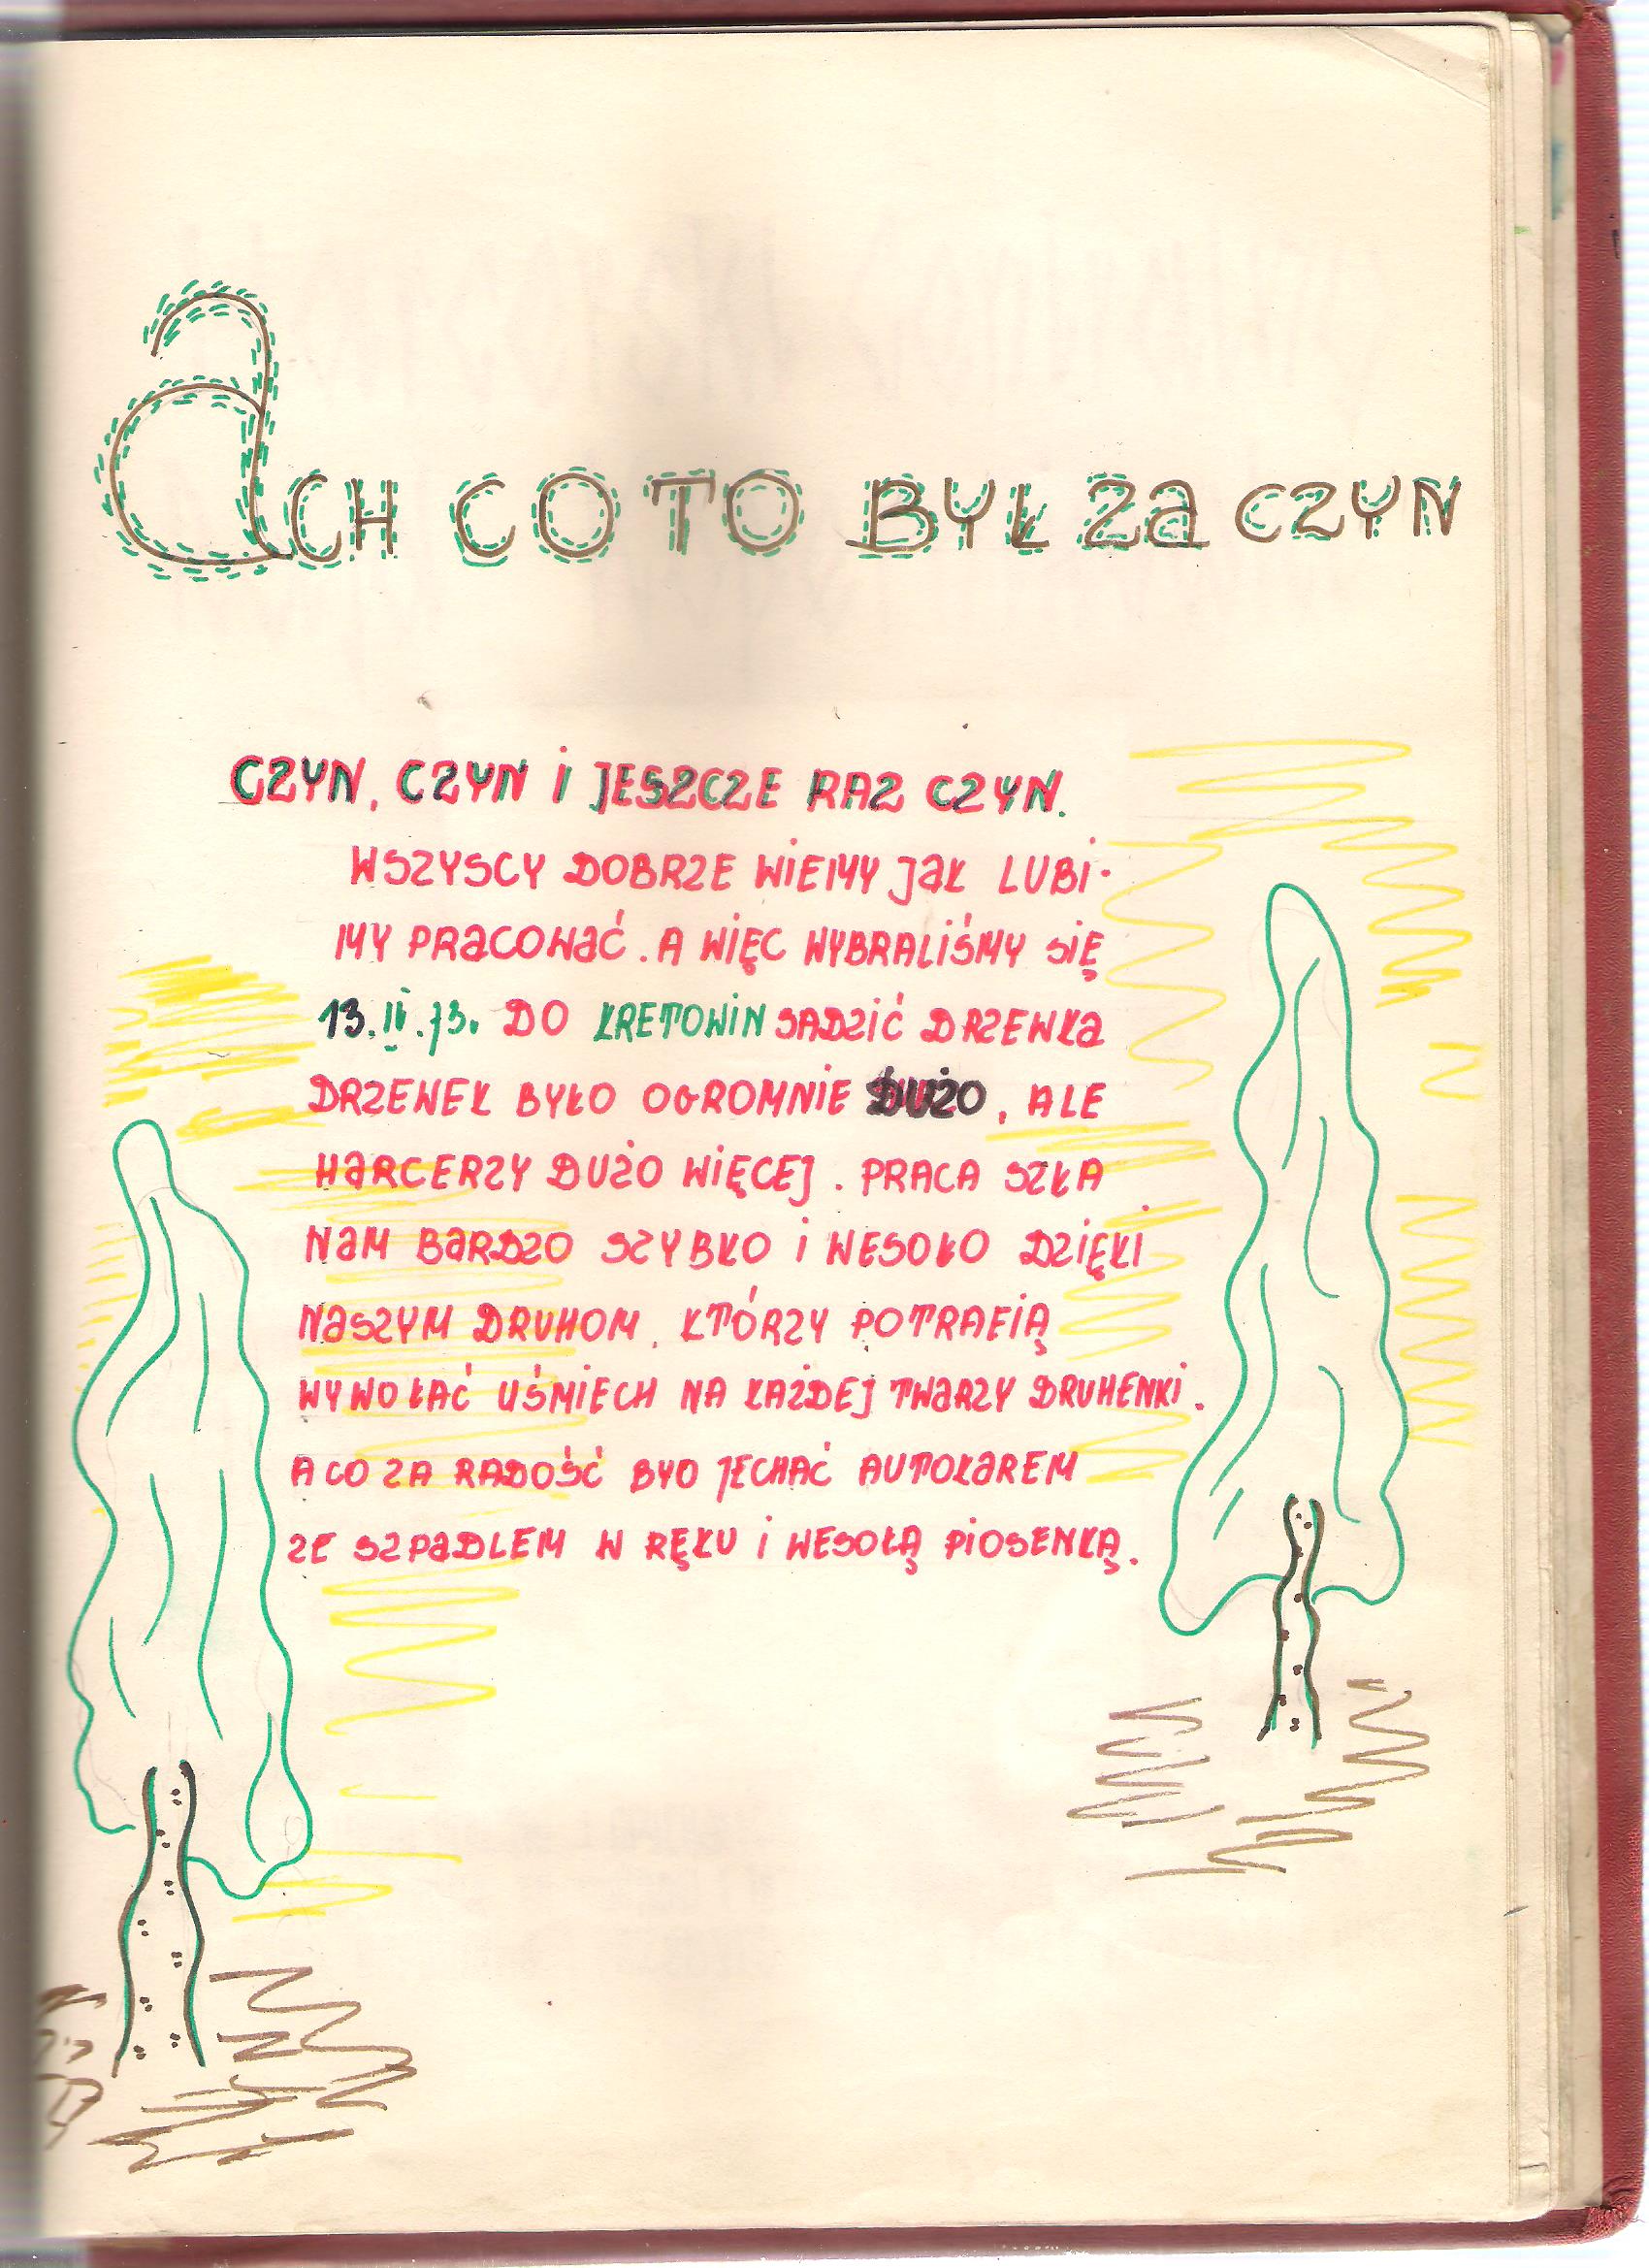 aCH CO TO BYŁ Za CZYN
CZYN, CZYN i JESZCZE RAZ CZYN.
WSZYSCY DOBRZE WiEMY JaK LUBi-
MY PRaCOWaĆ. A WIĘC WYBRALiŚMY SiĘ
13.IV.73. DO KRETOWiN SADZiĆ DRZEWKa
DRZEWEK BYŁO OGROMNiE DUŻO, ALE
HaRCERZY DUŻO WiĘCEJ. PRACA SZŁA
NaM BaRDZO SZYBKO i WESOŁO DZiĘKi
NaSZYM DRUHOM, KTÓRZY POTRAFiĄ
WYWOŁAĆ UŚMiECH NA KAŻDEJ TWaRZY DRUHENKi.
A CO ZA RADOŚĆ BYO JECHAĆ AUTOKaREM
ZE SZPaDLEM W RĘKU i WESOŁĄ PiOSENKĄ.